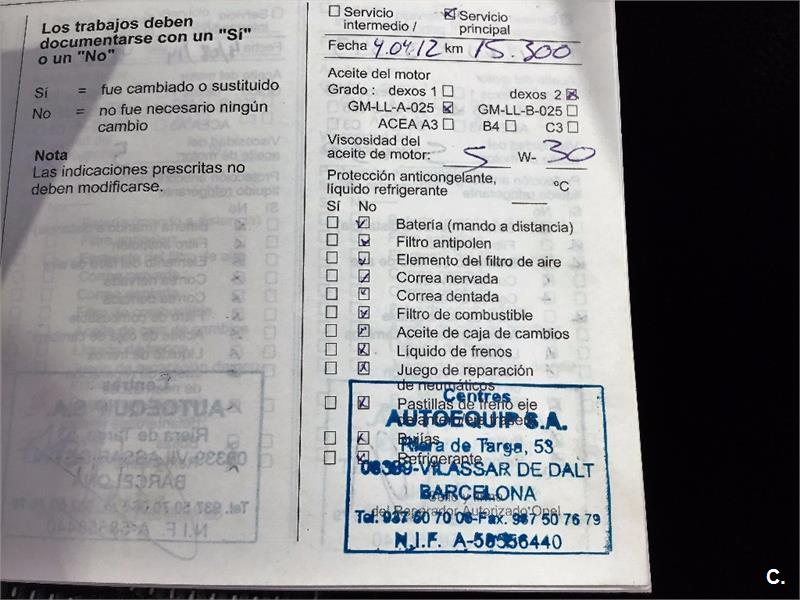 Los trabajos deben
documentarse con un "Sí"
o un "No"
Sí = fue cambiado o sustituido
No = no fue necesario ningún
cambio
Nota
Las indicaciones prescritas no
deben modificarse.
Servicio
intermedio /
Servicio
principal
Fecha 4.04.12 km 15.300
Aceite del motor
Grado : dexos 1 dexos 2
GM-LL-A-025 GM-LL-B-025
ACEA A3 B4 C3
Viscosidad del
aceite de motor: 5 W- 30
Protección anticongelante,
líquido refrigerante °C
Sí No
Batería (mando a distancia)
Filtro antipolen
Elemento del filtro de aire
Correa nervada
Correa dentada
Filtro de combustible
Aceite de caja de cambios
Líquido de frenos
Juego de reparación
de neumáticos
Pastillas de freno eje
delantero/eje trasero
Bujías
Refrigerante
del Reparador Autorizado Opel
Centres
AUTOEQUIP S.A.
Riera de Targa, 53
08339-VILASSAR DE DALT
BARCELONA
Tel. 937 50 70 06-Fax. 937 50 76 79
N.I.F. A-58556440
C.